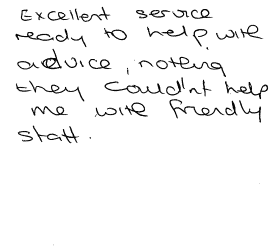 Excellent service
ready to help with
advice, nothing
they could'nt help
me with friendly
staff.